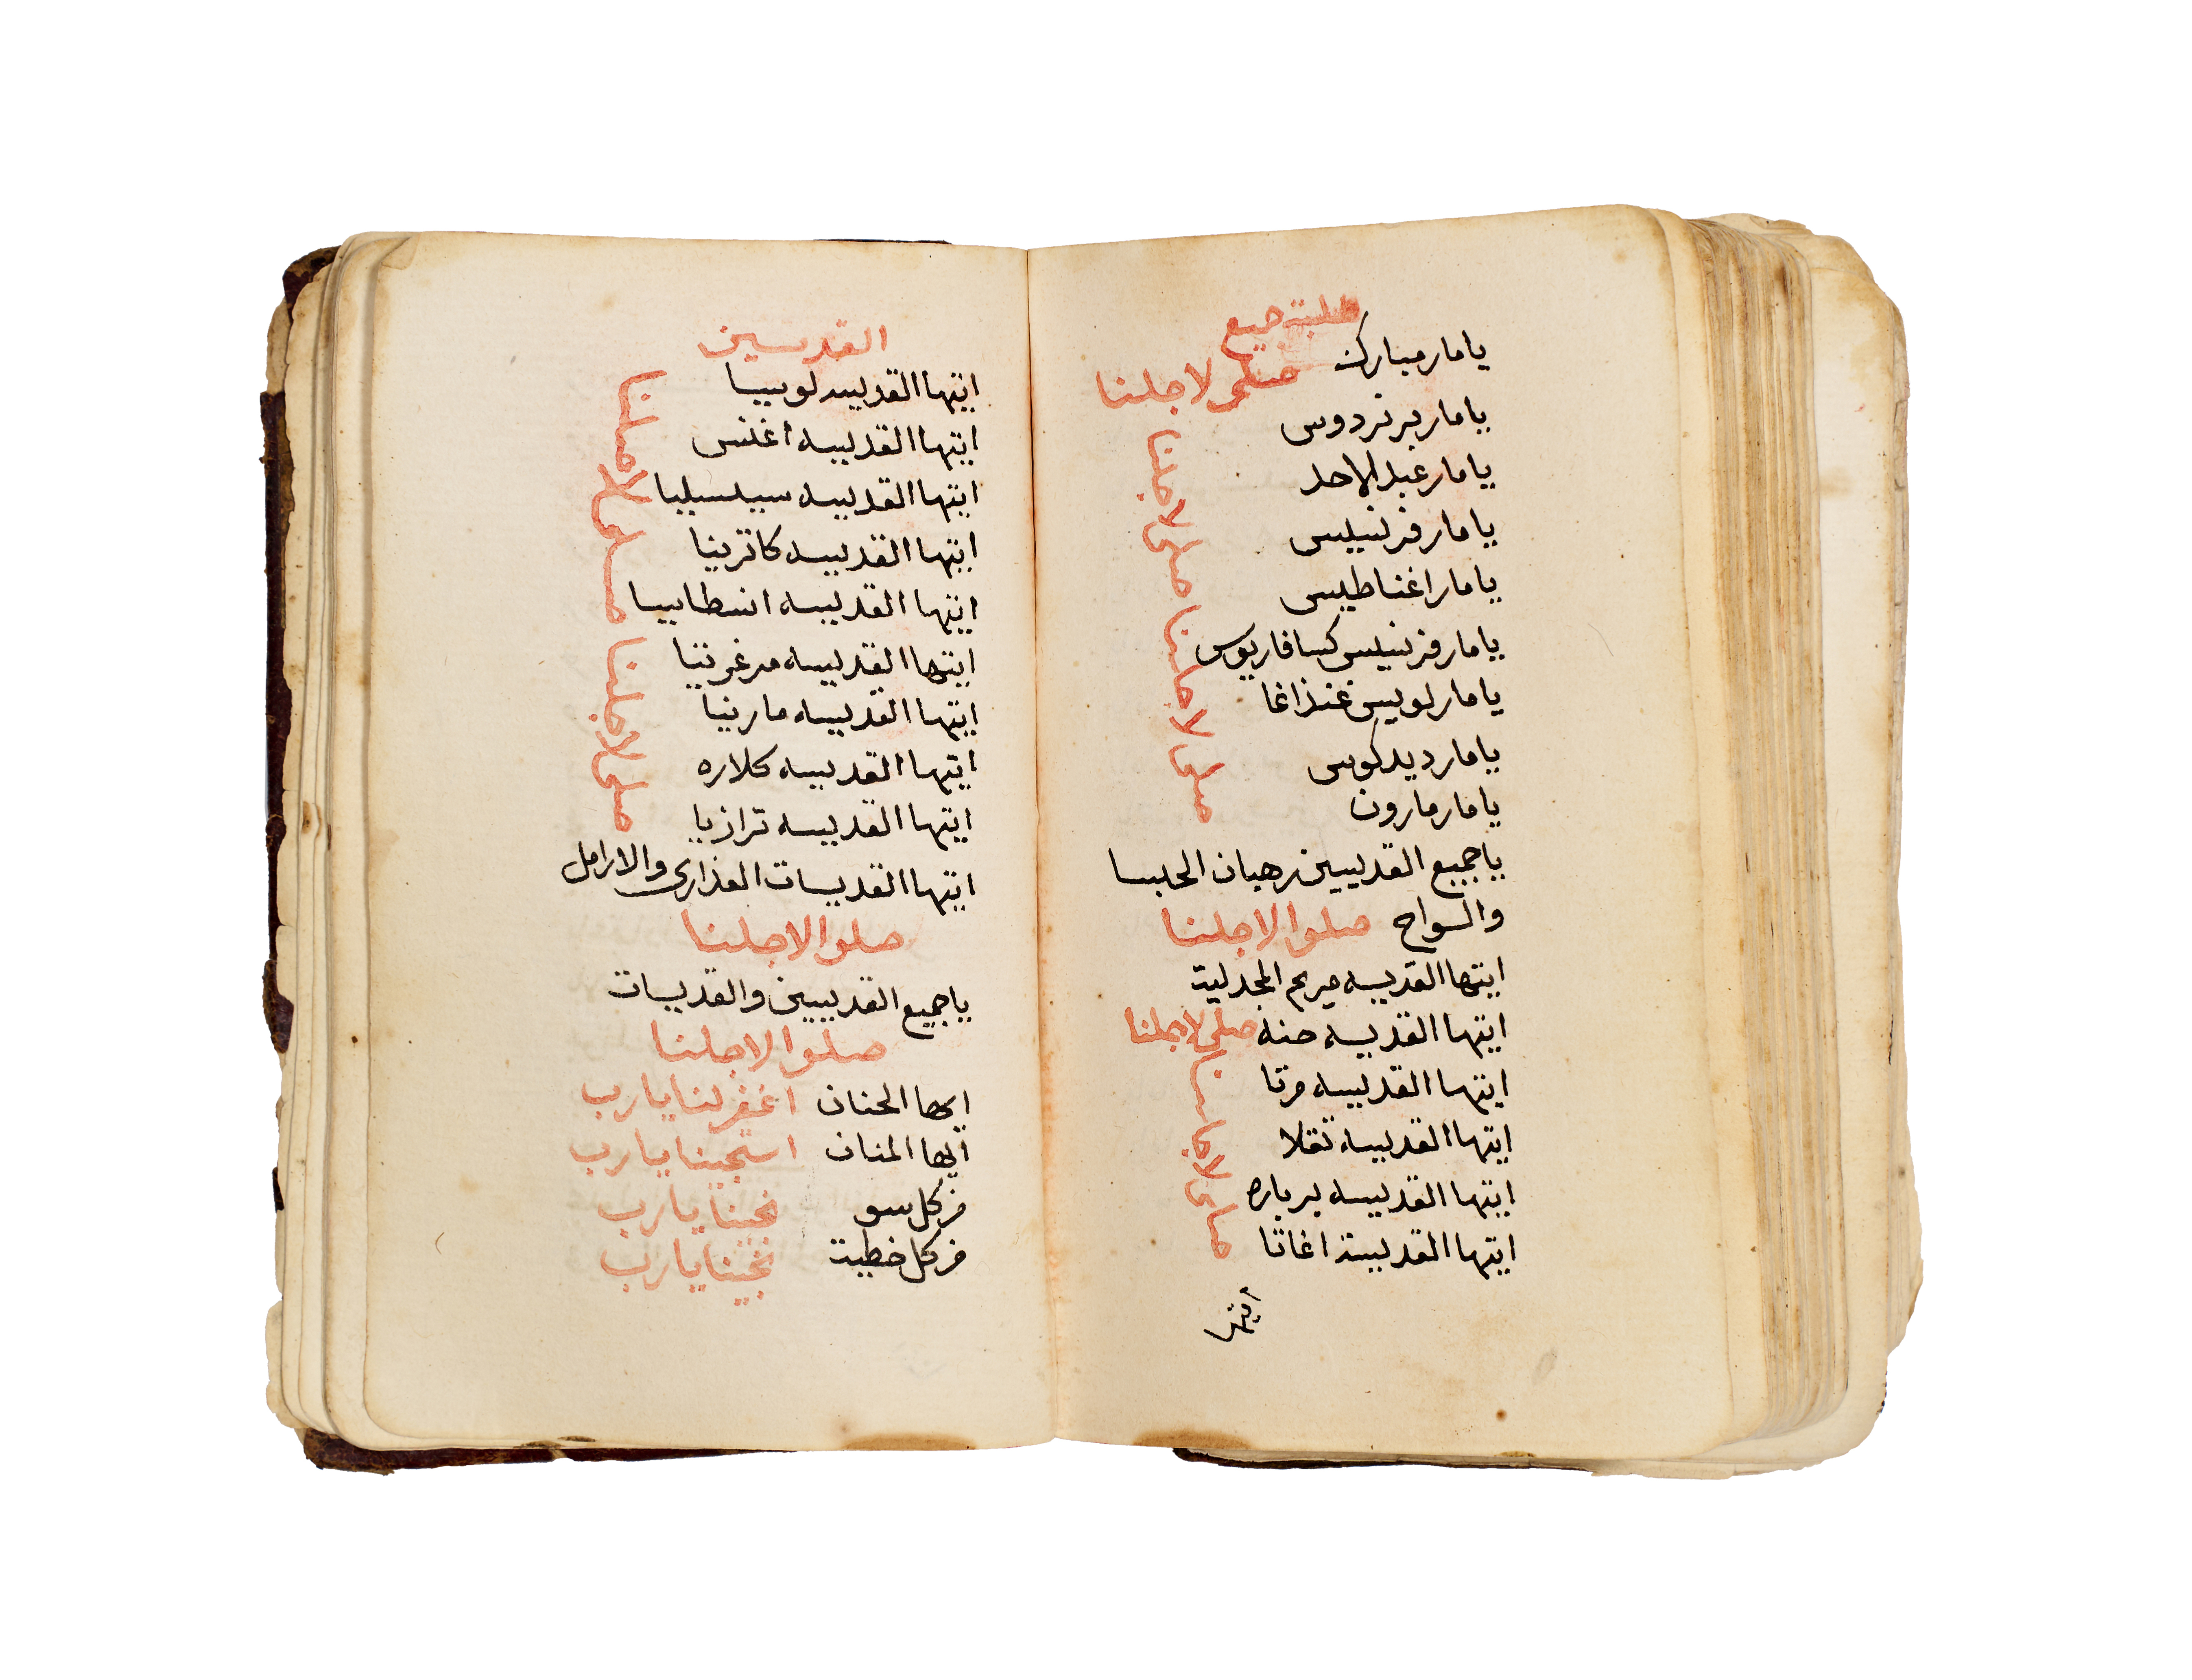 طلبة جميع
يا مار مبارك صلى لاجلنا
يا مار برنردوس
يا مار عبد الاحد
يا مار فرنسيس
يا مار اغناطيس
يا مار فرنسيس كسافاريوس
يا مار لويس غنذاغا
يا مار ديدكوس
يا مار مارون
يا جميع القديسين رهبان الحبسا
والسواح صلوا لاجلنا
ايتها القديسه مريم المجدلية
ايتها القديسه حنه صلى لاجلنا
ايتها القديسه مرتا
ايتها القديسه تقلا
ايتها القديسه بربارة
ايتها القديسة اغاتا
صلى لاجلنا صلى لاجلنا
صلى لاجلنا
ايتها
القديسين
ايتها القديسه لوسيا
ايتها القديسه اغنس
ايتها القديسه سيسيليا
ايتها القديسه كاترينا
ايتها القديسه انسطاسيا
ايتها القديسه مرغريتا
ايتها القديسه مارينا
ايتها القديسه كلاره
ايتها القديسه ترازيا
ايتها القديسات العذارى والارامل
صلى لاجلنا صلى لاجلنا
صلوا لاجلنا
يا جميع القديسين والقديسات
صلوا لاجلنا
ايها الحنان اغفر لنا يا رب
ايها المنان استجبنا يا رب
من كل سو نجينا يا رب
من كل خطية نجينا يا رب